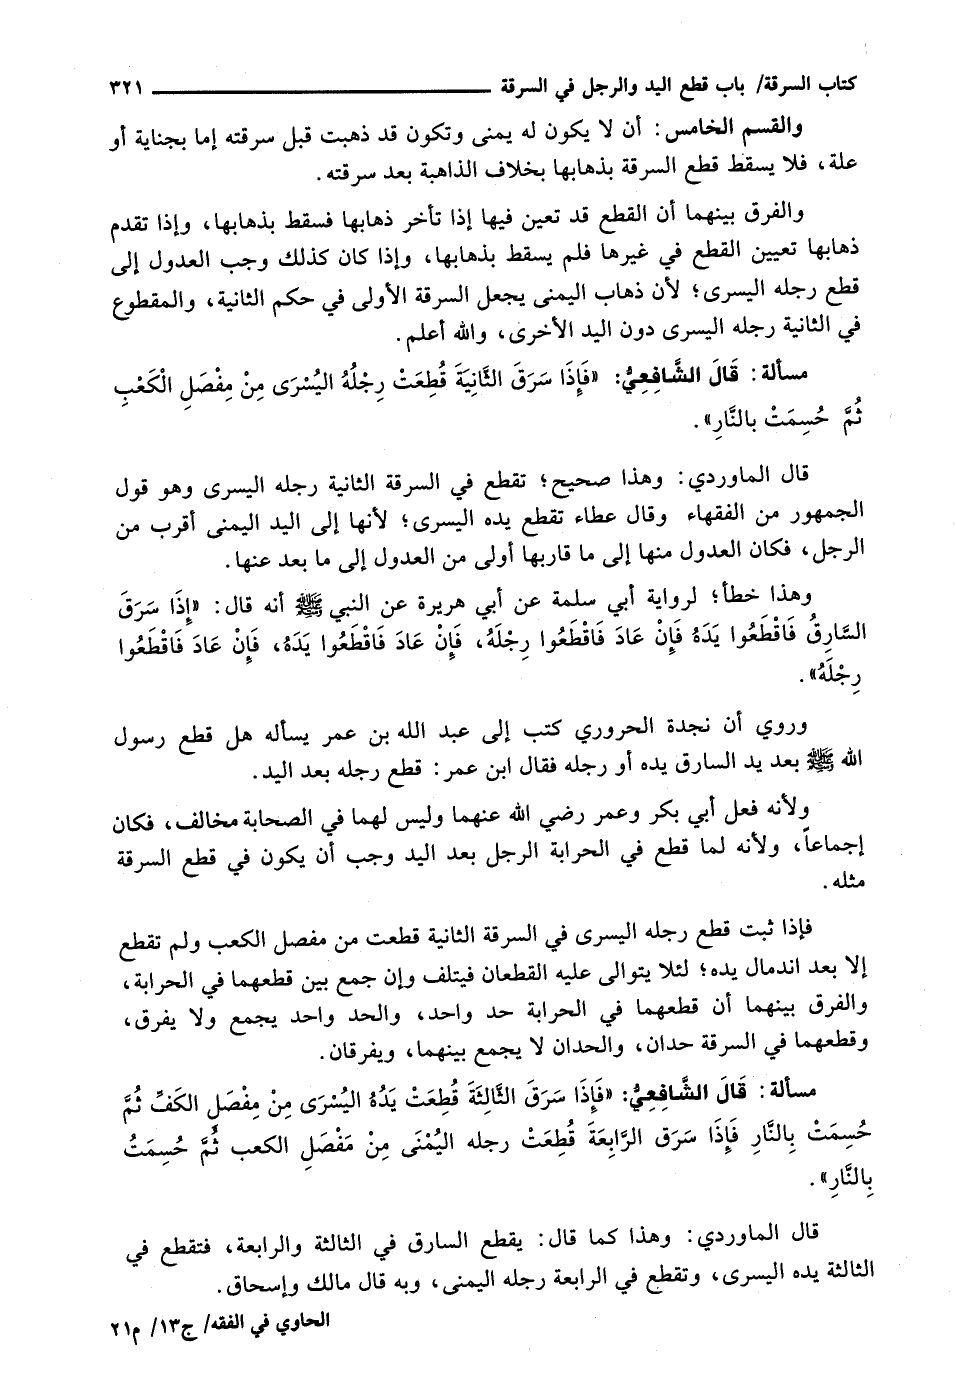 كتاب السرقة/ باب قطع اليد والرجل في السرقة ــــــــــــــــــــ ٣٢١
والقسم الخامس: أن لا يكون له يمنى وتكون قد ذهبت قبل سرقته إما بجناية أو
علة، فلا يسقط قطع السرقة بذهابها بخلاف الذاهبة بعد سرقته.
والفرق بينهما أن القطع قد تعين فيها إذا تأخر ذهابها فسقط بذهابها، وإذا تقدم
ذهابها تعيين القطع في غيرها فلم يسقط بذهابها، وإذا كان كذلك وجب العدول إلى
قطع رجله اليسرى؛ لأن ذهاب اليمنى يجعل السرقة الأولى في حكم الثانية، والمقطوع
في الثانية رجله اليسرى دون اليد الأخرى، والله أعلم.
مسألة: قَالَ الشَّافِعِيُّ: «فَإِذَا سَرَقَ الثَّانِيَةَ قُطِعَتْ رِجْلُهُ اليُسْرَى مِنْ مِفْصَلِ الْكَعْبِ
ثُمَّ حُسِمَتْ بالنَّارِ».
قال الماوردي: وهذا صحيح؛ تقطع في السرقة الثانية رجله اليسرى وهو قول
الجمهور من الفقهاء وقال عطاء تقطع يده اليسرى؛ لأنها إلى اليد اليمنى أقرب من
الرجل، فكان العدول منها إلى ما قاربها أولى من العدول إلى ما بعد عنها.
وهذا خطأ؛ لرواية أبي سلمة عن أبي هريرة عن النبي ﷺ أنه قال: «إِذَا سَرَقَ
السَّارِقُ فَاقْطَعُوا يَدَهُ فَإِنْ عَادَ فَاقْطَعُوا رِجْلَهُ، فَإِنْ عَادَ فَاقْطَعُوا يَدَهُ، فَإِنْ عَادَ فَاقْطَعُوا
رِجْلَهُ».
وروي أن نجدة الحروري كتب إلى عبد الله بن عمر يسأله هل قطع رسول
الله ﷺ بعد يد السارق يده أو رجله فقال ابن عمر: قطع رجله بعد اليد.
ولأنه فعل أبي بكر وعمر رضي الله عنهما وليس لهما في الصحابة مخالف، فكان
إجماعاً، ولأنه لما قطع في الحرابة الرجل بعد اليد وجب أن يكون في قطع السرقة
مثله.
فإذا ثبت قطع رجله اليسرى في السرقة الثانية قطعت من مفصل الكعب ولم تقطع
إلا بعد اندمال يده؛ لئلا يتوالى عليه القطعان فيتلف وإن جمع بين قطعهما في الحرابة،
والفرق بينهما أن قطعهما في الحرابة حد واحد، والحد واحد يجمع ولا يفرق،
وقطعهما في السرقة حدان، والحدان لا يجمع بينهما، ويفرقان.
مسألة: قَالَ الشَّافِعِيُّ: «فَإِذَا سَرَقَ الثَّالِثَةَ قُطِعَتْ يَدُهُ اليُسْرَى مِنْ مِفْصَلِ الكَفِّ ثُمَّ
حُسِمَتْ بِالنَّارِ فَإِذَا سَرَقَ الرَّابِعَةَ قُطِعَتْ رجله اليُمْنَى مِنْ مَفْصَلِ الكعب ثُمَّ حُسِمَتُ
بِالنَّارِ».
قال الماوردي: وهذا كما قال: يقطع السارق في الثالثة والرابعة، فتقطع في
الثالثة يده اليسرى، وتقطع في الرابعة رجله اليمنى، وبه قال مالك وإسحاق.
الحاوي في الفقه/ ج١٣/ م٢١